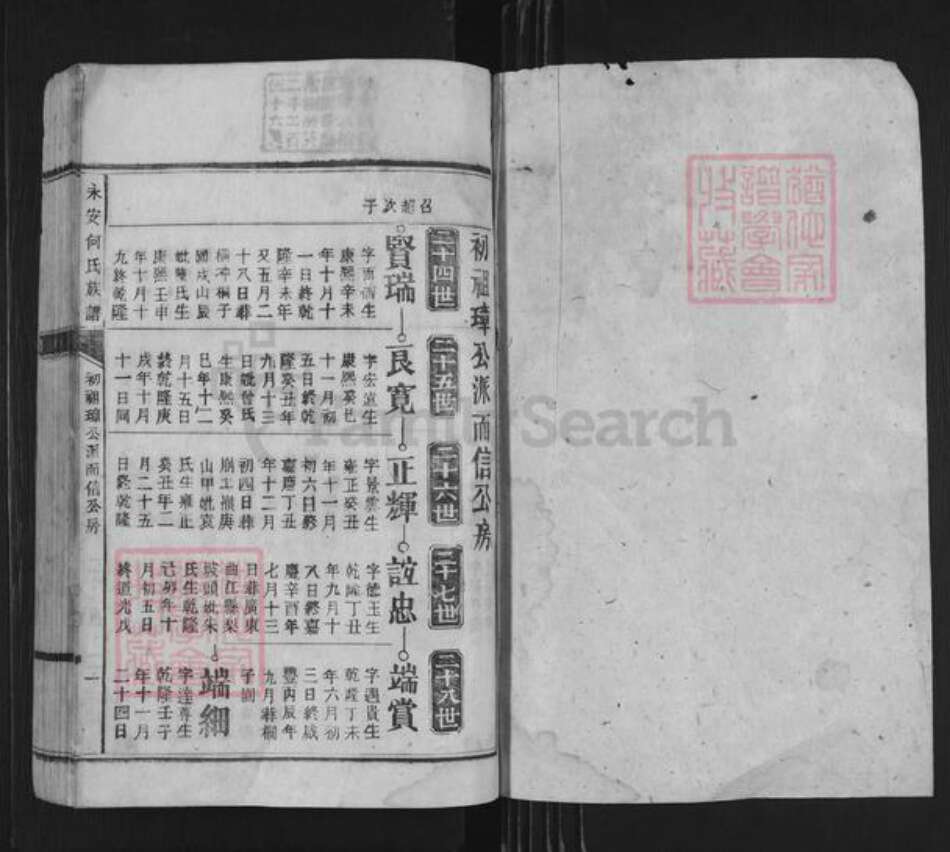 初祖璋公派而信公房
召超次子
二十四世
賢瑞
康熙辛未
年十月十
一日終乾
隆辛未年
又五月二
十八日葬
妣龔氏生
康熙壬申
年十月十
九終乾隆
二十五世
良寬
十一月初
五日終乾
隆癸丑年
九月十三
日妣曾氏
生康熙癸
巳年十二
月十五日
終乾隆庚
戌年十月
十一日同
二十六世
正輝
字景雲生
雍正癸丑
年十一月
初六日終
嘉慶丁丑
年十二月
初四日葬
山甲妣袁
氏生雍正
癸丑年二
月二十五
日終乾隆
二十七世
字德玉生
乾隆丁丑
年九月十
八日終嘉
慶辛酉年
七月十三
日葬廣東
曲江縣梨
坡頭妣朱
氏生乾隆
己卯年十
月初五日
終道光戊
二十八世
端賞
字遇貴生
乾隆丁未
年六月初
三日終咸
豐丙辰年
端細
字達尊生
乾隆壬子
年十一月
二十四日
永安何氏族譜
初祖璋公派而信公房
一
FamilySearch